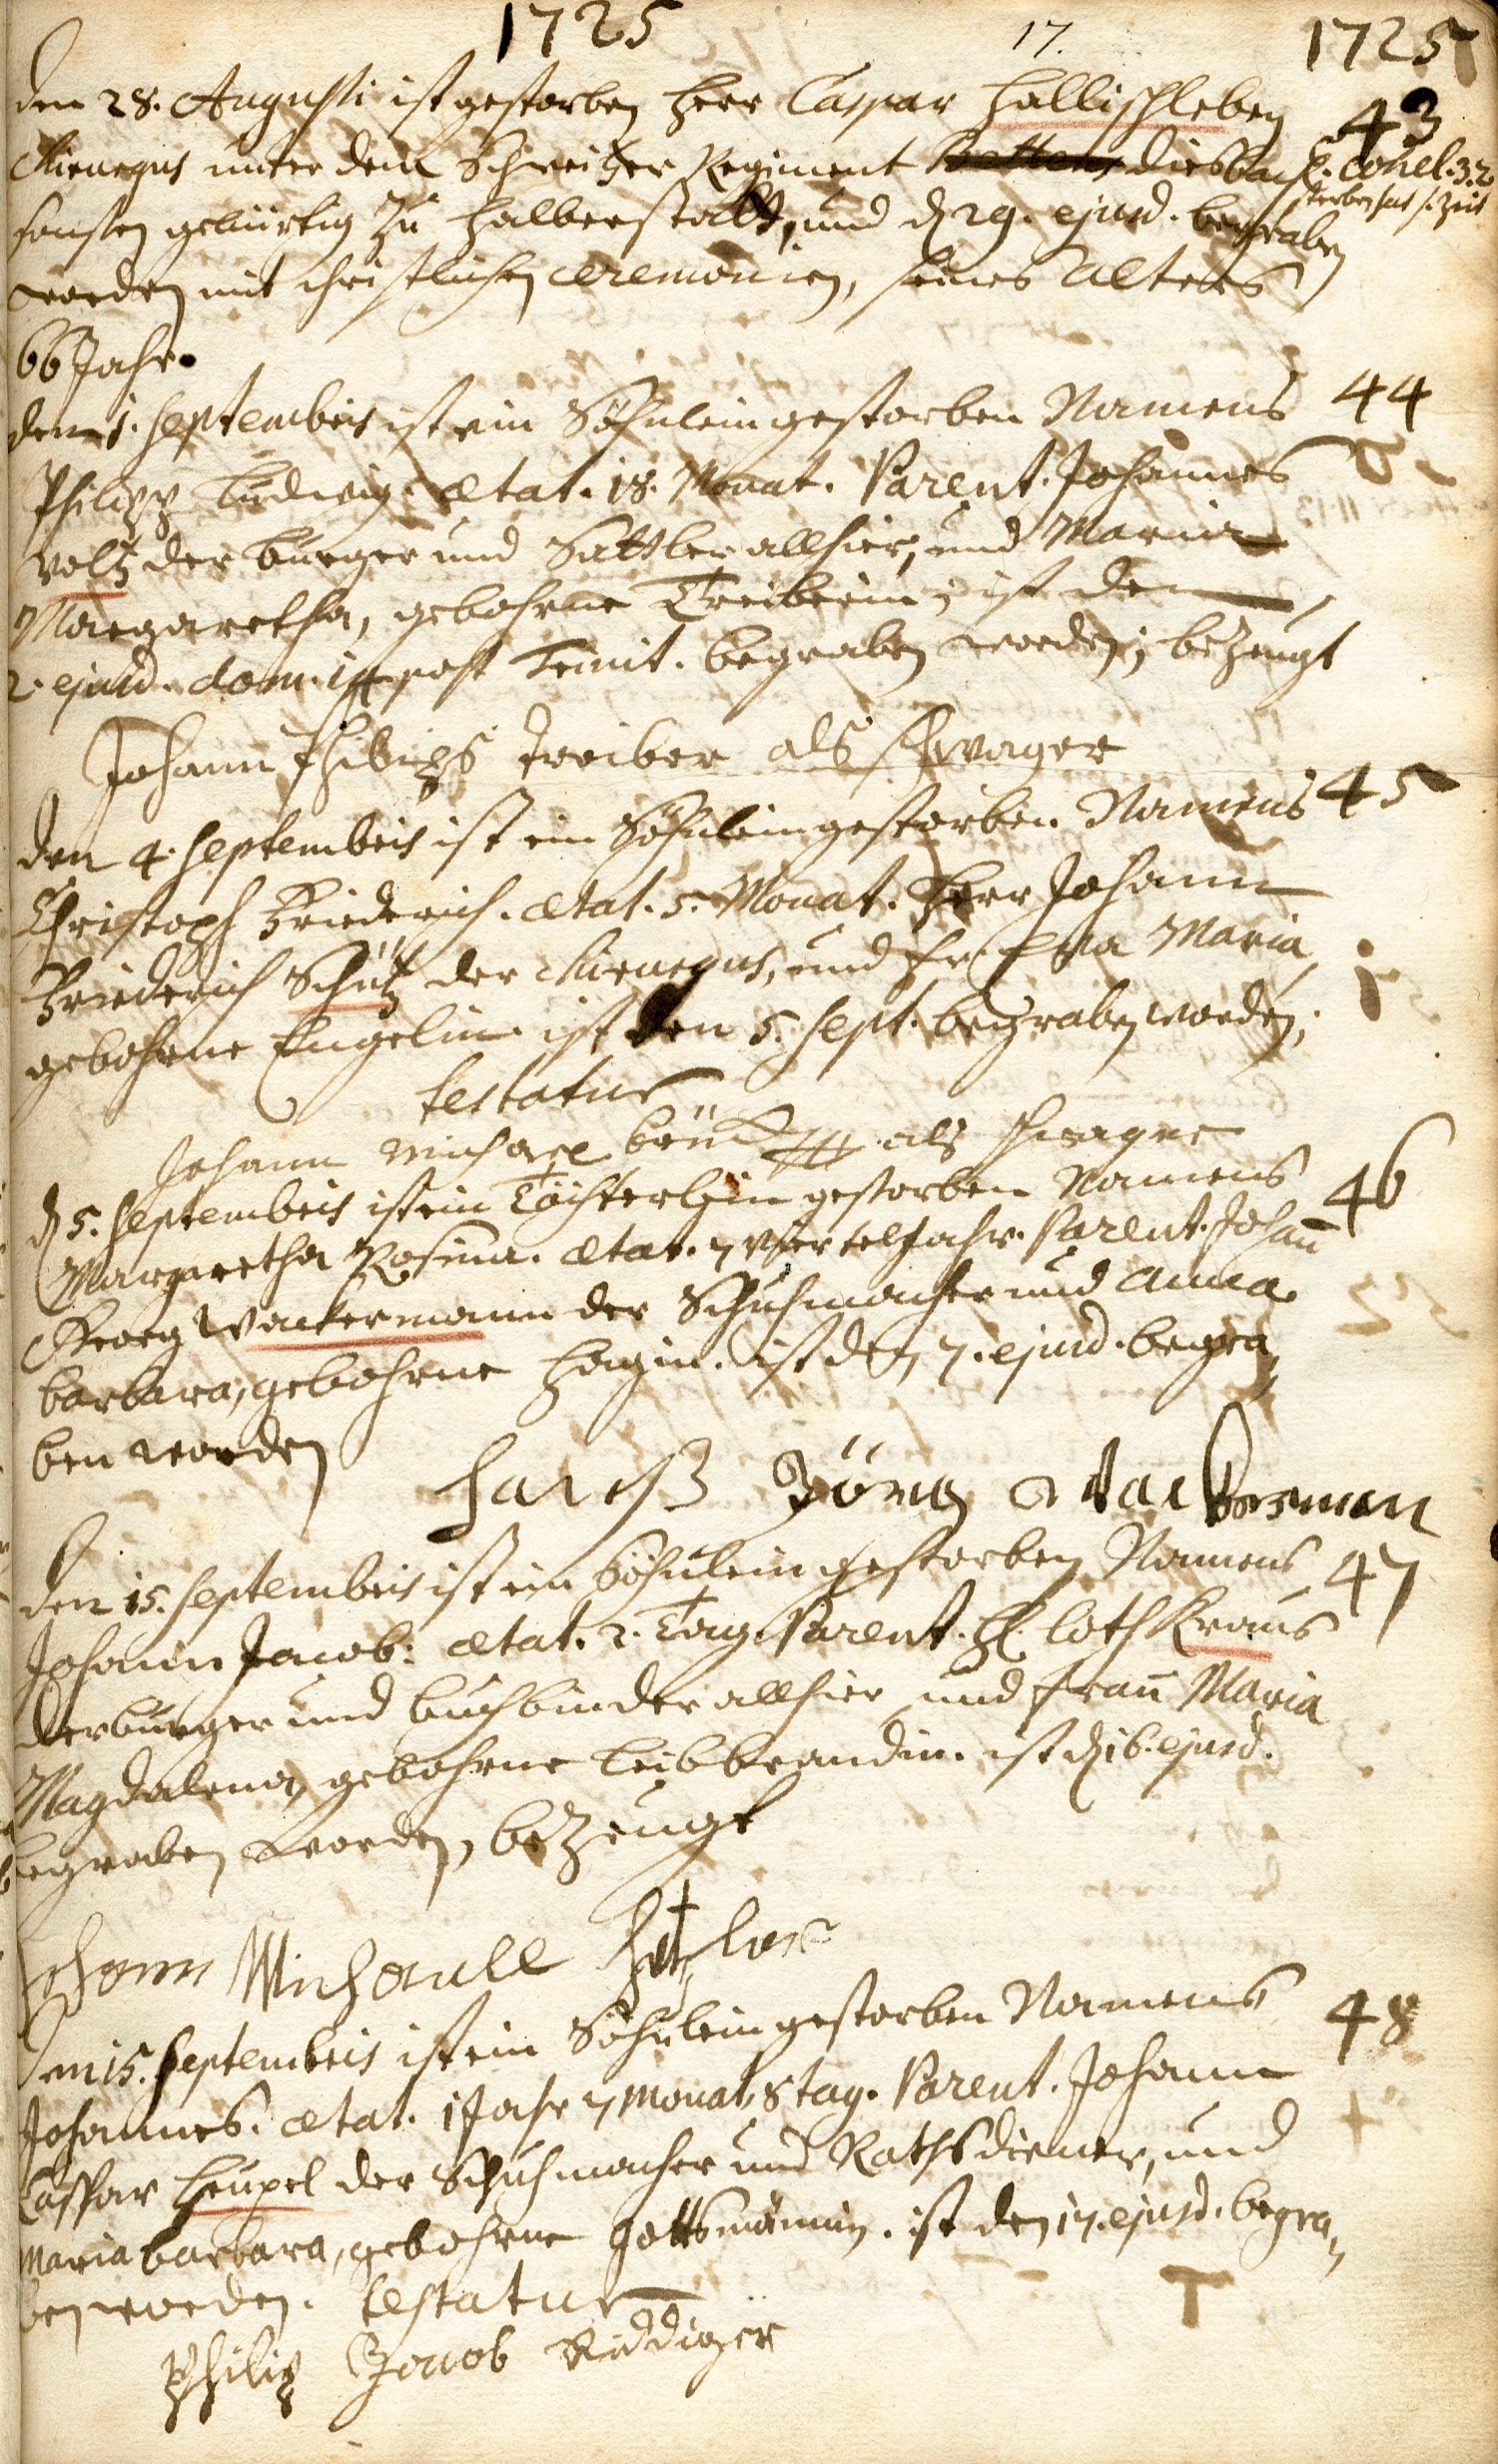 1725 17. 1725
den 28. Augusti ist gestorben Herr Caspar Hallischleben 43
Chirurgus unter dem Schweitzer Regiment Diesbach. Cohel. 3.2
sterben hat s. Zeit
sonsten gebürtig zu Halberstatt, und d 29. ejusd. begraben
worden mit christlichen Ceremonien, seines Alters
66 Jahr.
den 1. Septembris ist ein Söhnlein gestorben Namens 44
Philipp Ludwig. Ætat. 18. Monat. Parent. Johannes
Voltz der burger und Sattler allhier, und Maria
Margaretha, gebohrne Treiberin; ist den
2. ejusd. dom. 14 post Trinit. begraben worden; bezeugt
Johann Philips Treiber als schwager
den 4. Septembris ist ein Söhnlein gestorben Namens 45
Christoph Friederich. Ætat. 5. Monat. Herr Johann
Friederich Schütz der Chirurgus, und Fr. Eva Maria,
gebohrne Engelin. ist den 5. Sept. begraben worden;
testatur
Johann Michael brück als schwager
d 5. Septembris ist ein Töchterlein gestorben Namens 46
Margaretha Rosina. Ætat. 7 Viertel Jahr. Parent. Johañ
Georg Wackermann der Schuhmacher und Anna
barbara, gebohrne Hagin. ist den 7. ejusd. begra
ben worden
Hanß Jörg Wackerman
den 15. Septembris ist ein Söhnlein gestorben Namens 47
Johann Jacob: Ætat. 2. Tag. Parent. H. Loth Kraus
der burger und buchbinder allhier und Frau Maria
Magdalena, gebohrne Leibbrandin. ist d 16. ejusd.
begraben worden, bezeugt
Johann Michaell
den 15. Septembris ist ein Söhnlein gestorben Namens 48
Johannes. Ætat. 1 Jahr 7 Monat 8 tag. Parent. Johann
Caspar Heupel der Schuhmacher und Rathsdiener, und
Maria barbara, gebohrne Gottsmännin. ist den 17. ejusd. begra
ben worden. testatur
Philip Jacob Riddiger